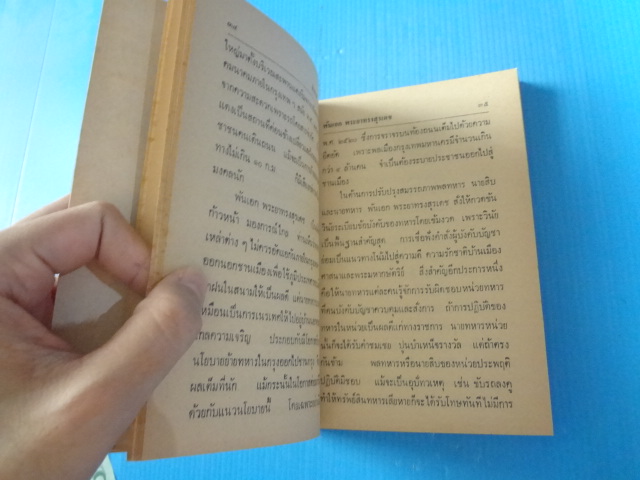 ๓๔
ใหญ่มาตั้งบริเวณสะพานแดง
คมนาคมภายในกรุงเทพ
จากความสะดวกเพราะรถโดยสาร
แดงเป็นสถานที่ค่อนข้าง
ชาวชนคนเดินถนน
ทางไม่เกิน ๑๐ ก.ม.
มงคลนัก
พันเอก พระยาทรงสุรเดช
ก้าวหน้า มองการณ์ไกล
เหล่าต่าง ๆ ไม่ควรอัดแอกันภายใน
ออกนอกชานเมืองเพื่อใช้ภูมิประเทศ
เหมือนเป็นการเนรเทศให้ไปอยู่บ้าน
ไกลความเจริญ ประกอบกับมีโอกาส
นโยบายย้ายทหารในกรุงออกไปชานกรุง
ผลเต็มที่นัก แม้กระนั้นในโอกาส
ด้วยกับแนวนโยบายนี้ โดยเฉพาะ
พันเอก พระยาทรงสุรเดช
๓๕
พ.ศ. ๒๕๒๐ ซึ่งการจราจรบนท้องถนนเต็มไปด้วยความ
อึดอัด เพราะพลเมืองกรุงเทพมหานครมีจำนวนเกิน
กว่า ๔ ล้านคน จำเป็นต้องระบายประชาชนออกไปสู่
ชานเมือง
ในด้านการปรับปรุงสมรรถภาพพลทหาร นายสิบ
และนายทหาร พันเอก พระยาทรงสุรเดช สั่งให้กวดขัน
วินัยระเบียบข้อบังคับของทหารโดยเข้มงวด เพราะวินัย
เป็นพื้นฐานสำคัญสุด การเชื่อฟังคำสั่งผู้บังคับบัญชา
ย่อมเป็นแนวทางโน้มไปสู่ความดี ความรักชาติบ้านเมือง
ศาสนาและพระมหากษัตริย์ สิ่งสำคัญอีกประการหนึ่ง
คือให้นายทหารแต่ละคนรู้จักการรับผิดชอบหน่วยทหาร
ที่ตนบังคับบัญชาควบคุมและสั่งการ ถ้าการปฏิบัติของ
ทหารในหน่วยเป็นผลดีแก่ทางราชการ นายทหารหน่วย
นั้นก็จะได้รับคำชมเชย ปูนบำเหน็จรางวัล แต่ถ้าตรง
กันข้าม พลทหารหรือนายสิบของหน่วยประพฤติ
ปฏิบัติมิชอบ แม้จะเป็นอุบัติเหตุ เช่น ขับรถลงคู
ทำให้ทรัพย์สินทหารเสียหายก็จะได้รับโทษทันทีไม่มีการ